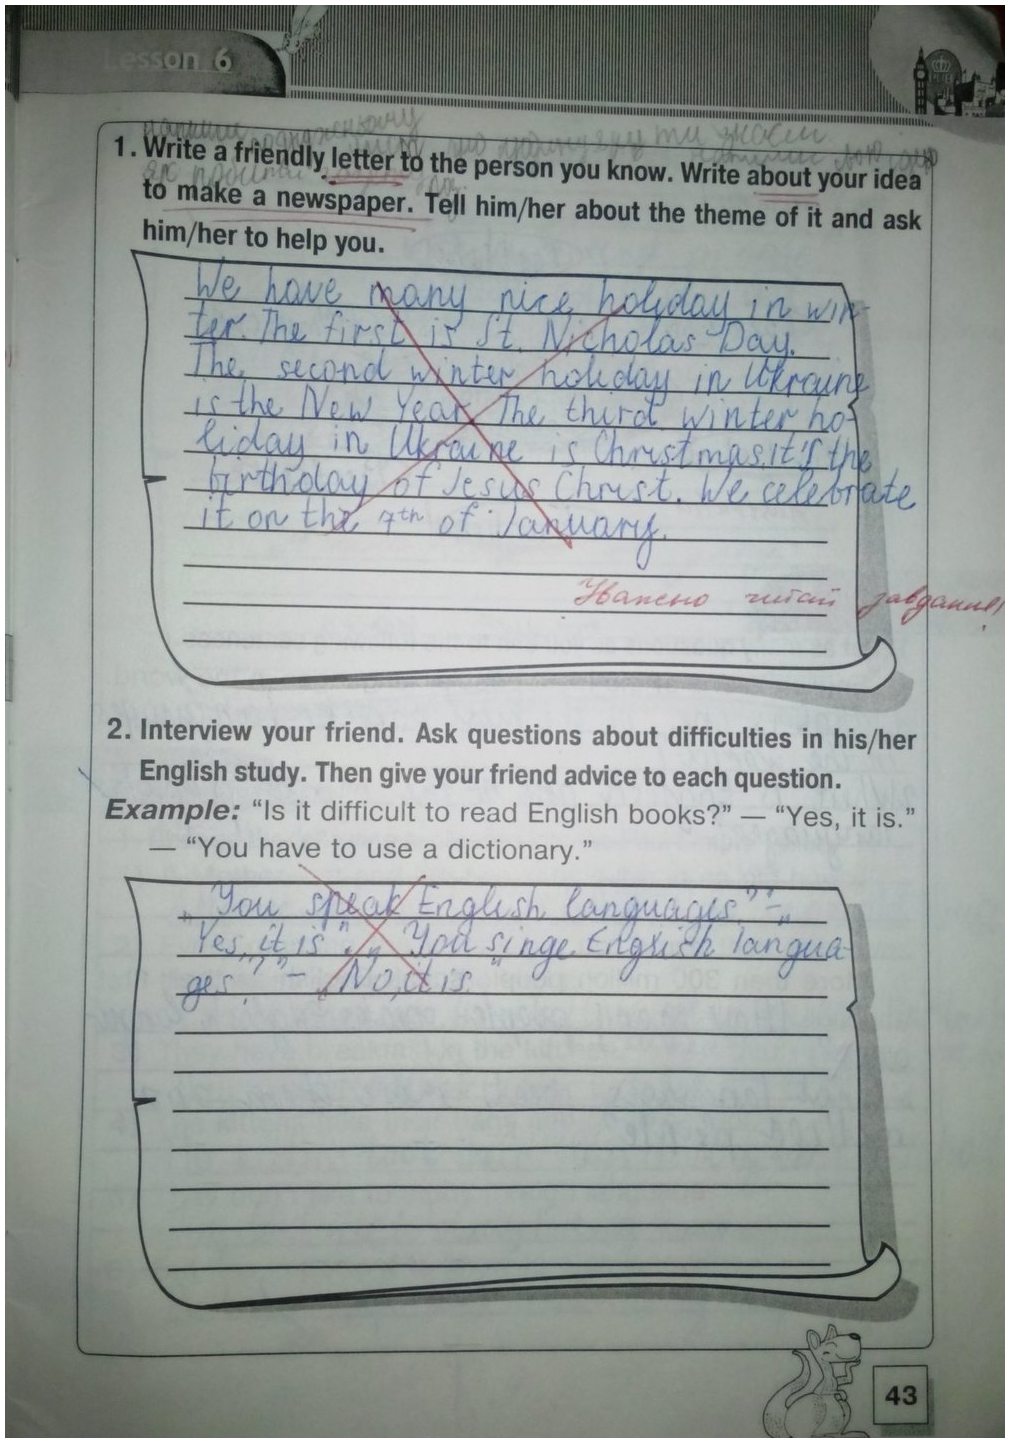 Lesson 6
1. Write a friendly letter to the person you know. Write about your idea
to make a newspaper. Tell him/her about the theme of it and ask
him/her to help you.
We have many nice holiday in win-
ter. The first is St. Nicholas Day.
The second winter holiday in Ukraine
is the New Year. The third winter ho-
liday in Ukraine is Christmas.it's the
birthday of Jesus Christ. We celebrate
it on the 7th of January.
Уважно читай завдання!
2. Interview your friend. Ask questions about difficulties in his/her
English study. Then give your friend advice to each question.
Example: “Is it difficult to read English books?” — “Yes, it is.”
— “You have to use a dictionary.”
„You speak English languages?” - „
Yes, it is”. „You singe English langua-
ges?” - „No, it is.”
43